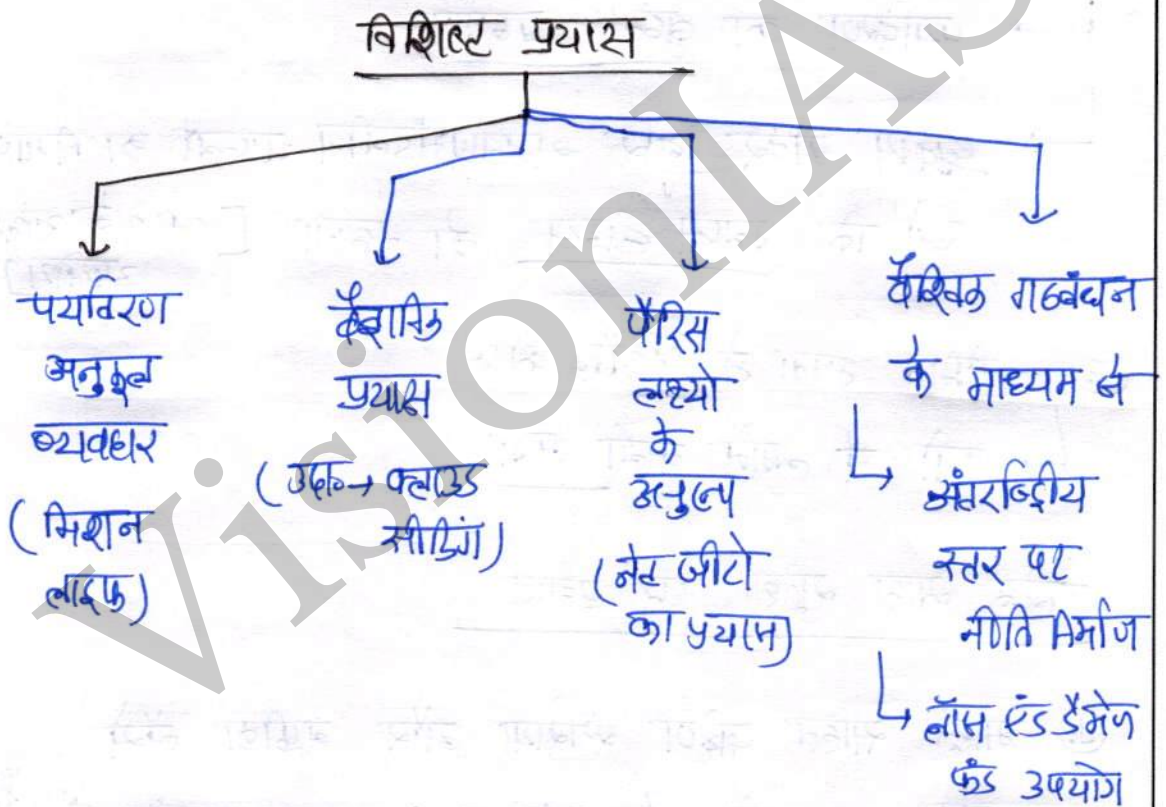 विशिष्ट प्रयास
पर्यावरण
अनुकूल
व्यवहार
(मिशन
लाइफ)
वैज्ञानिक
प्रयास
(उदा०→ क्लाउड
सीडिंग)
पेरिस
लक्ष्यो
के
अनुरूप
(नेट जीरो
का प्रयास)
वैश्विक गठबंधन
के माध्यम से
अंतर्राष्ट्रीय
स्तर पर
नीति निर्माण
लॉस एंड डैमेज
फंड उपयोग
VisionIAS